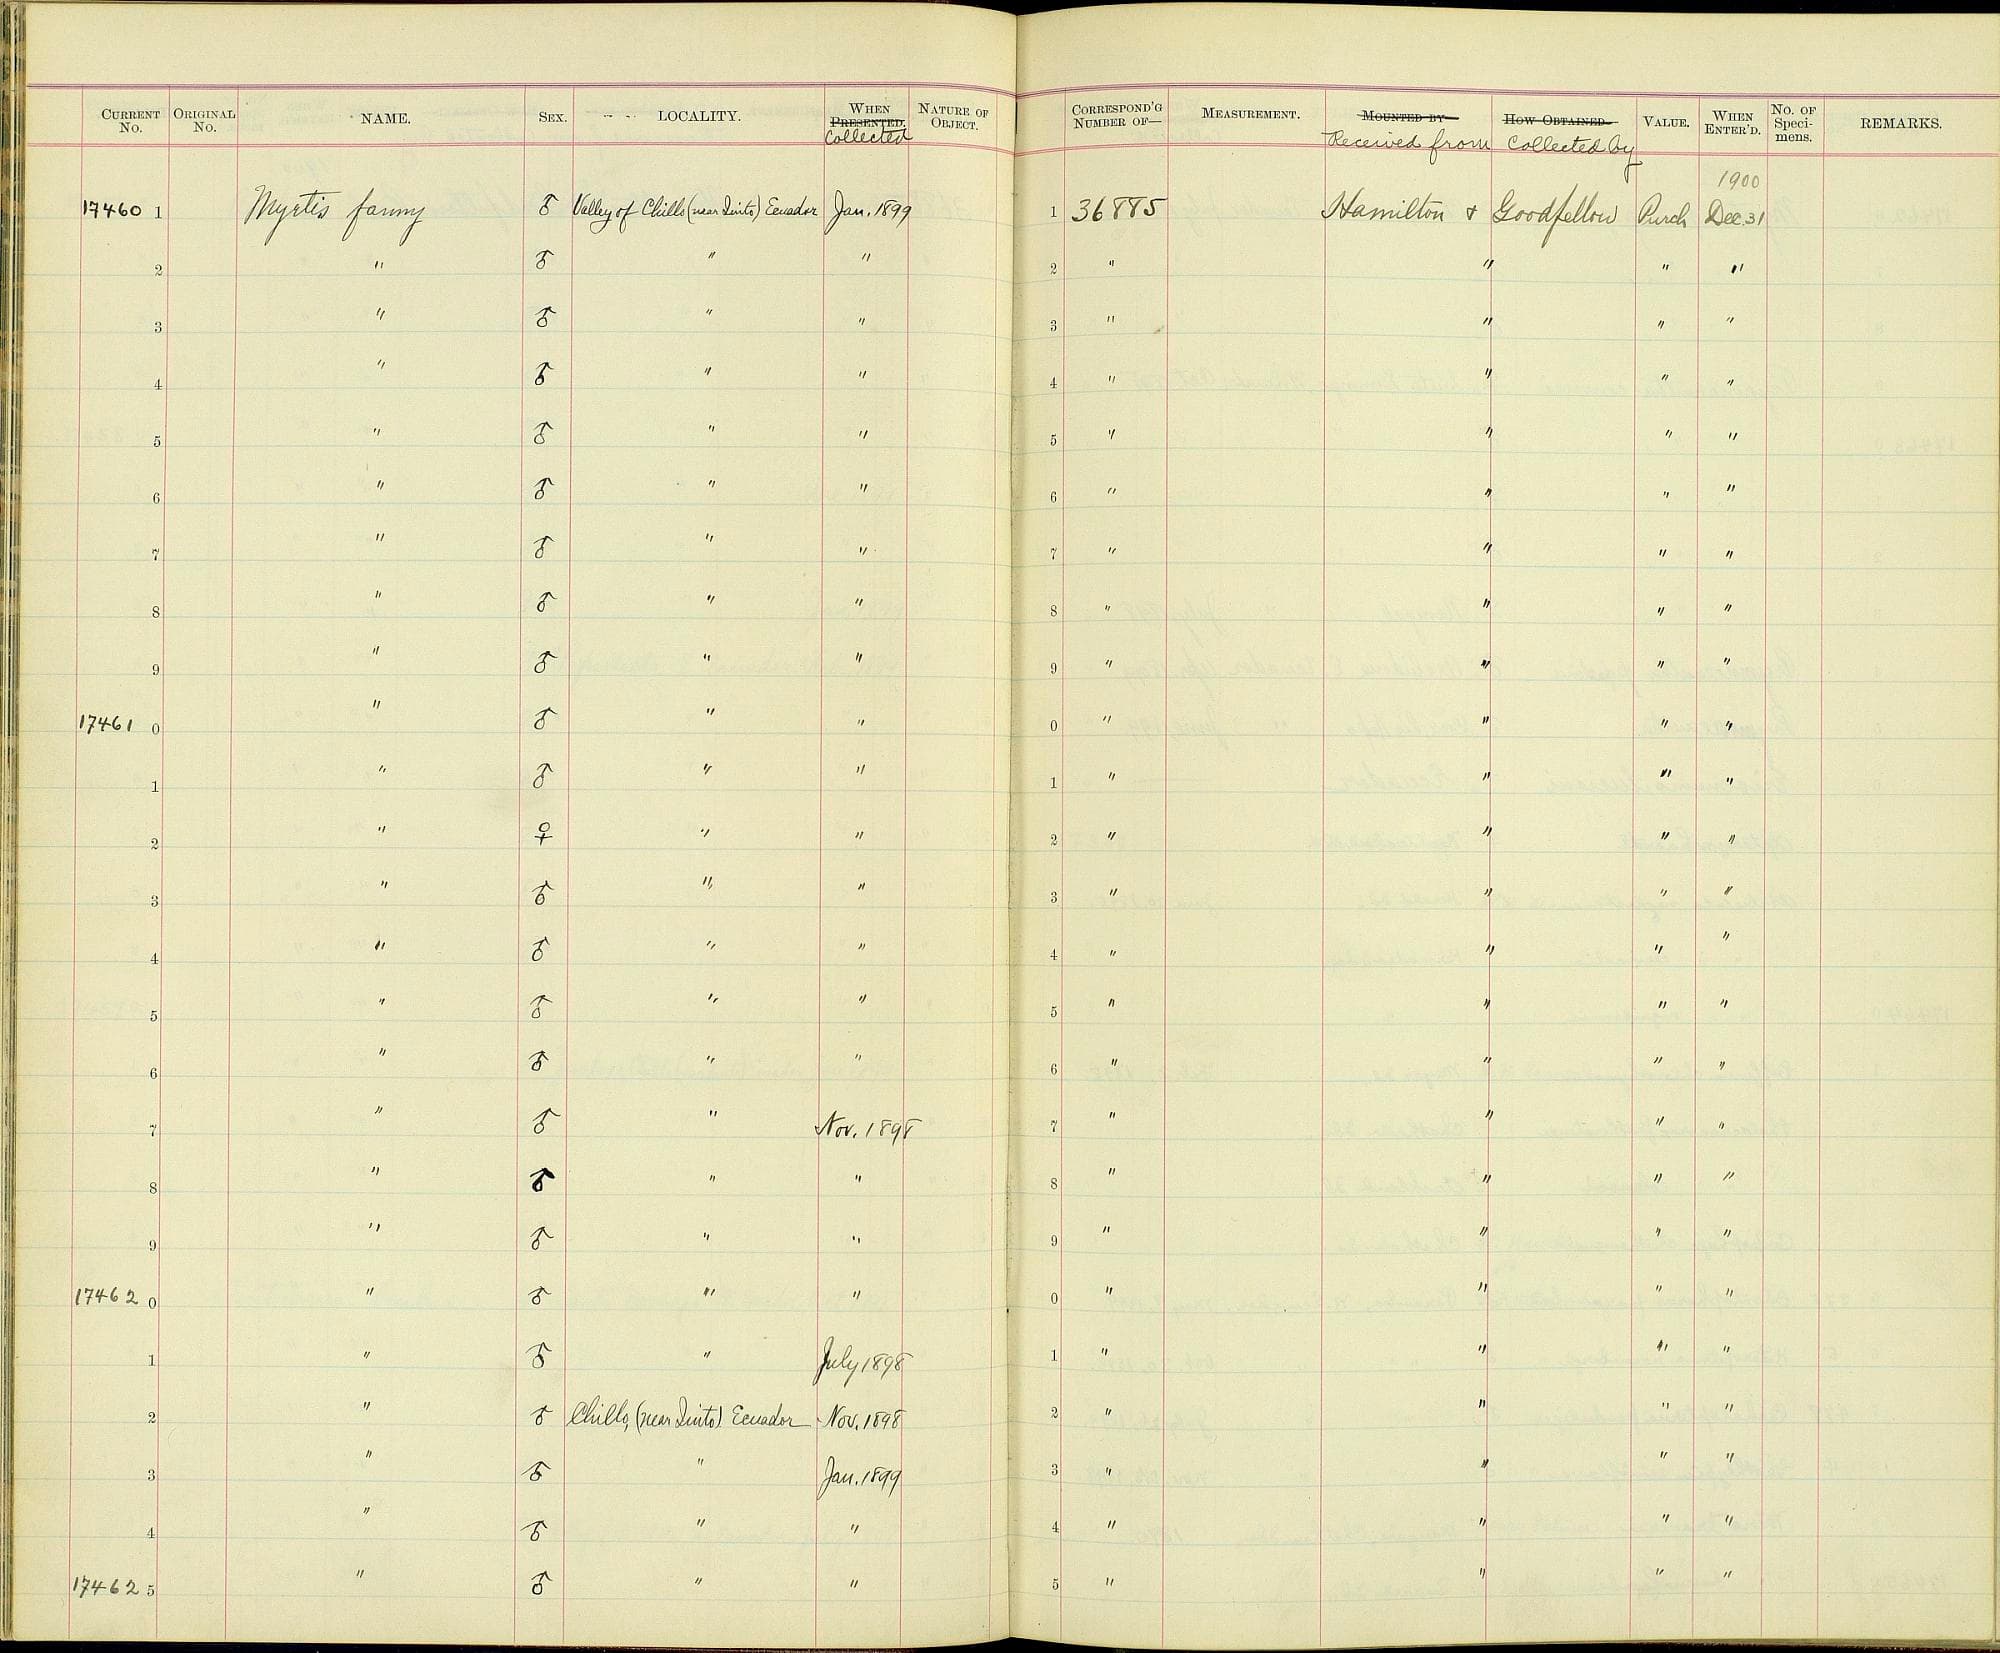 CURRENT No. ORIGINAL No. NAME. SEX. LOCALITY. WHEN PRESENTED. Collected NATURE OF OBJECT. CORRESPOND'G NUMBER OF— MEASUREMENT. MOUNTED BY Received from HOW OBTAINED Collected by VALUE. WHEN ENTER'D. No. OF Speci-mens. REMARKS.
1900
17460 1 Myrtis fanny ♂ Valley of Chillo (near Quito) Ecuador Jan. 1899 1 36885 Hamilton & Goodfellow Purch Dec. 31
2 " ♂ " " 2 " " " "
3 " ♂ " " 3 " " " "
4 " ♂ " " 4 " " " "
5 " ♂ " " 5 " " " "
6 " ♂ " " 6 " " " "
7 " ♂ " " 7 " " " "
8 " ♂ " " 8 " " " "
9 " ♂ " " 9 " " " "
17461 0 " ♂ " " 0 " " " "
1 " ♂ " " 1 " " " "
2 " ♀ " " 2 " " " "
3 " ♂ " " 3 " " " "
4 " ♂ " " 4 " " " "
5 " ♂ " " 5 " " " "
6 " ♂ " " 6 " " " "
7 " ♂ " Nov. 1898 7 " " " "
8 " ♂ " " 8 " " " "
9 " ♂ " " 9 " " " "
17462 0 " ♂ " " 0 " " " "
1 " ♂ " July 1898 1 " " " "
2 " ♂ Chillo, (near Quito) Ecuador Nov. 1898 2 " " " "
3 " ♂ " Jan. 1899 3 " " " "
4 " ♂ " " 4 " " " "
17462 5 " ♂ " " 5 " " " "